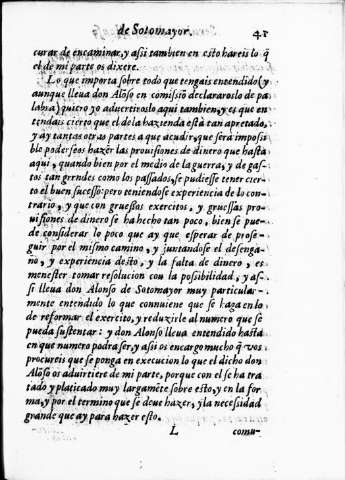 de Sotomayor. 41
curar de encaminar, y assi tambien en esto hareis lo q̃
el de mi parte os dixere.
Lo que importa sobre todo que tengais entendido (y
aunque lleua don Alõso en comissiõ declararoslo de pa
labra) quiro yo aduertiroslo aqui tambien, y es que en
tendais cierto que el de la hazienda està tan apretado,
y ay tantas otras partes a que acudir, que serà imposis
ble poder seos hazer las prouisiones de dinero que hasta
aqui, y quando bien por el medio de la guerra, y de gas-
tos tan grndes como los passados, se pudiesse tener cier-
to el buen sucesso: pero teniendose experiencia de lo con-
trario, y que con gruessos exercitos, y gruessas pro-
uisiones de dinero se ha hecho tan poco, bien se pue-
de considerar lo poco que ay que esperar de prose-
guir por el mismo camino, y juntandose el desenga-
ño, y experiencia desto, y la falta de dinero, es
menester tomar resolucion cou la posibilidad, y as-
si lleua don Alonso de Sotomayor muy particular-
mente entendido lo que conuiene que se haga en lo
de reformar el exercito, y reduzirle al numero que se
pueda sustentar: y don Alonso lleua entendido hasta
en que numero podra ser, y assi os encargo mucho q̃ vos
procureis que se ponga en execucion lo que el dicho don
Alõso os aduirtiere de mi parte, porque con el se ha tra
tado y platicado muy largamẽte sobre esto, y en la for
ma, y por el termino que se deue hazer, y la necessidad
grande que ay para hazer esto.
L comu-